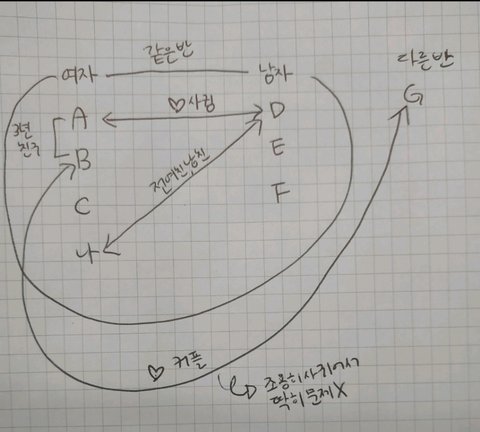 같은반
여자 남자
다른반
A ♡사귐 D G
3년
친구
B 전여친남친 E
C F
나
♡ 커플
조용히사귀어서
딱히문제X